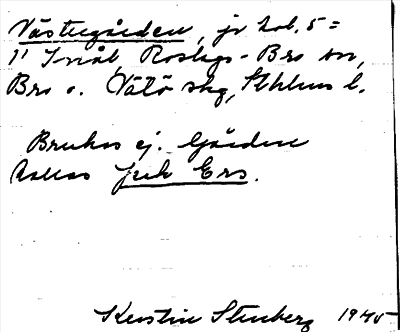 Västergården, jr hob. 5 =
1¹ Snål Roslgs-Bro sn,
Bro o. Vätö skg, Sthlms l.
Brukas ej. Gården
kallas Jerk Ers.
Kerstin Stenberg 1945